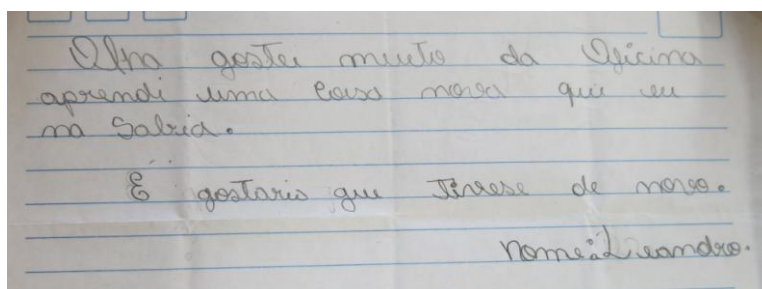 Olha gostei muito da Oficina
aprendi uma coisa nova qui eu
na Sabia.
E gostario que Tivese de novo.
nome: Leandro.